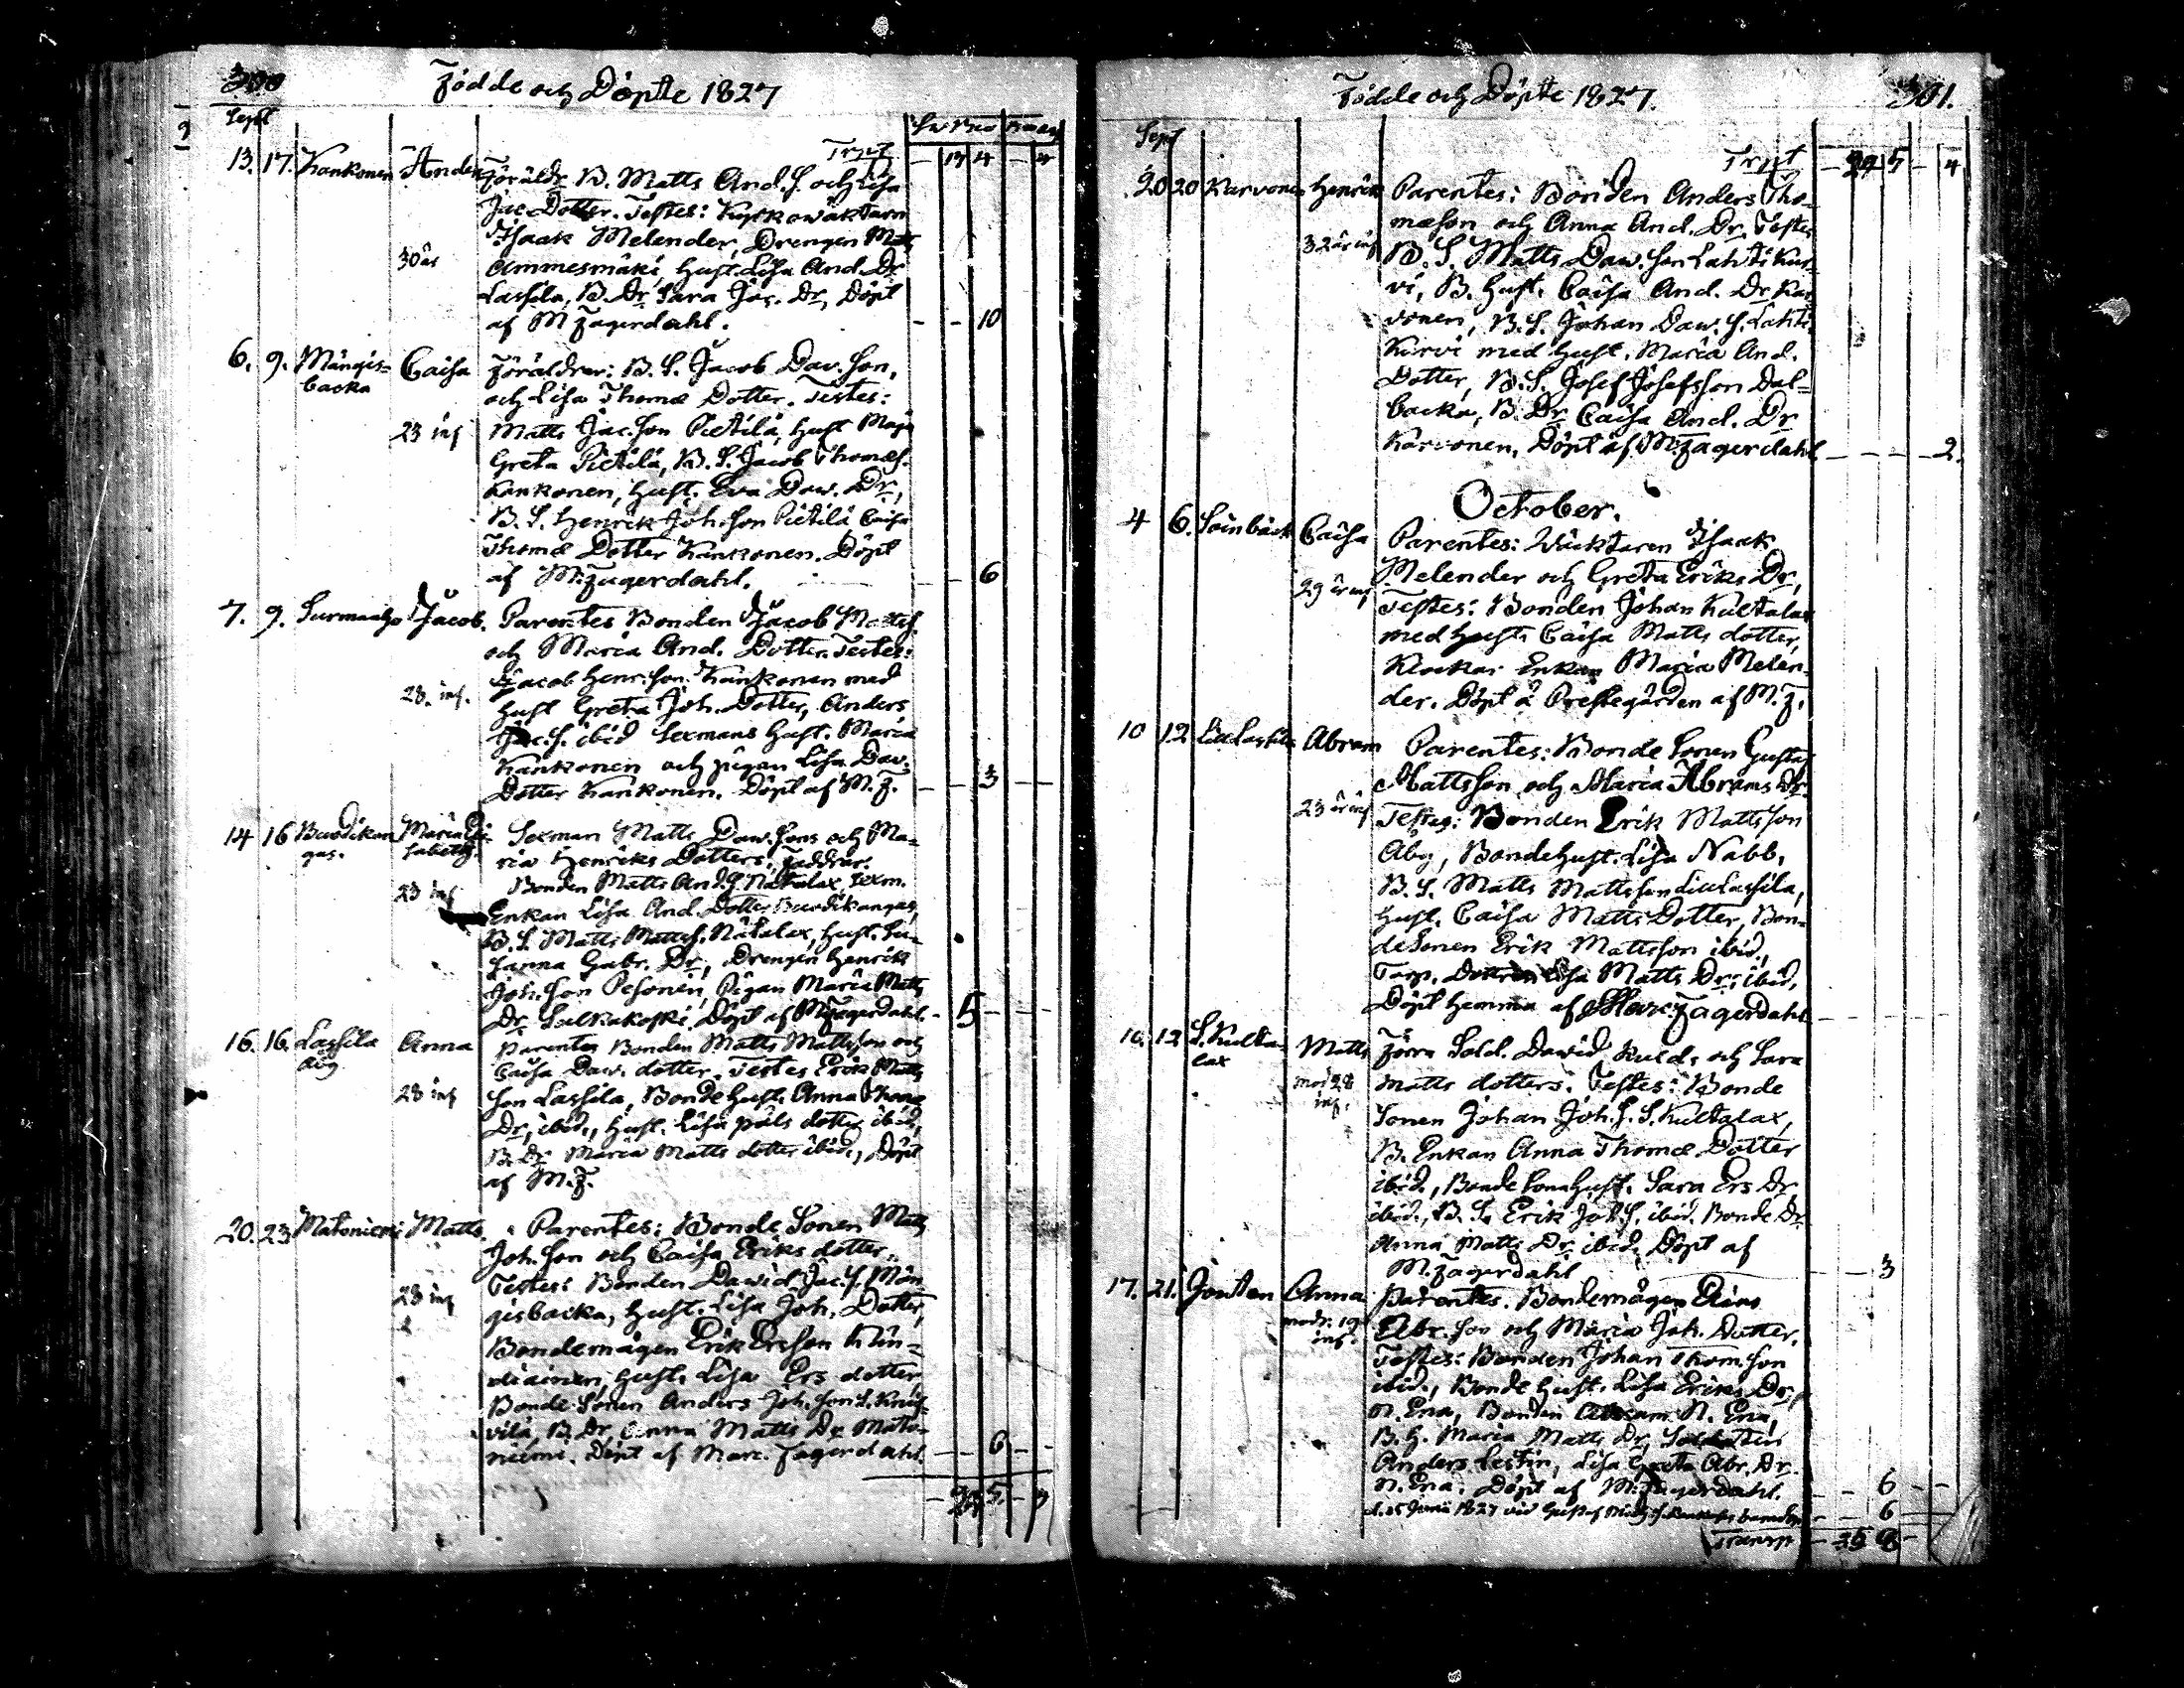 300
Födde och Döpte 1827
Sept
Trspt — 17 4 — 4
13. 17. Kankonen Anders Föräldr. B. Matts And. S. och Lisa
Jac. Dotter. Testes: Kyrkowäktarn
Isaak Melender, Drengen Matts
30 år Ammesmäki, Hust. Lisa And. Dr
Lassila, B. Dr. Sara Jac. Dr, Döpt
af M Fagerdahl. - - 10
6. 9. Mängis= Caisa Föräldrar: B. S. Jacob Dav. Son,
backa och Lisa Thomæ Dotter. Testes:
23 inf Matts Jac. Son Pietilä, Hust Maja
Greta Pietilä, B. S. Jacob Thomæs.
Kankonen, Hust. Eva Daw. Dr,
B. S. Henrik Joh. Son Pietilä Caisa
Thomæ Dotter Kankonen. Döpt
af M. Fagerdahl. 6
7. 9. Surmaaho Jacob. Parentes Bonden Jacob Mattss.
och Maria And. Dotter. Testes:
Jacob Henr. Son. Kankonen med
28. inf. Hust Greta Joh. Dotter, Anders
Jac. S. ibid Sexmans Hust. Maria
Kankonen och pigan Lisa Dav.
Dotter Kankonen. Döpt af M. F. — — 3 — —
14 16 Maria Eli
sabeth. Sexman Matts Daw. Sons och Ma-
ria Henriks Dotters. Faddrar:
23 inf Bonden Matts And. S. Sexm.
Enkan Lisa And. Dotter
B. S. Matts Mattss. Hust. Su-
sanna Gabr. Dr, Drengen Henrik
Joh. Son Pesonen, Pigan Maria Matts
Dr. Döpt af M Fagerdahl. - 5 - -
16. 16. Lassila Anna Parentes Bonden Matts Mattsson och
Åby Caisa Daw. dotter. Testes Erik Matts
28 inf Son Lassila, Bonde Hust. Anna Thomæ
Dr, ibid., Hust. Lisa påls dotter ibid,
B. Dr Maria Matts dotter ibid., Döpt
af M. F.
20. 23 Matoniemi Matts. Parentes: Bonde Sonen Matts
Joh. Son och Caisa Eriks dotter.
Testes: Bonden Dawid Jac. S. Män
28 inf gisbacka, Hust. Lisa Joh. Dotter,
Bondemågen Erik Ersson
Hust. Lisa Ers dotter
Bonde Sonen Anders Joh. Son
B. Dr, Anna Matts Dr Mato-
niemi. Döpt af Marc. Fagerdahl. — — 6 — -
— 5. — 4
Födde och Döpte 1827.
301.
Sept
Trspt — 5 — 4
20 20 Karvonen Henrik Parentes: Bonden Anders Tho-
mæson och Anna And. Dr. Testes
32 år inf B. S. Matts Daw. Son Lahti Kur-
vi, B. Hust. Caisa And. Dr Kar
vonen, B. S. Johan Daw. S. Lahti
Kurvi med Hust. Maria And.
Dotter, B. S. Josef Josefsson Dal-
backa, B. Dr. Caisa And. Dr
Karvonen, Döpt af M. Fagerdahl. — - - - 2.
October.
4 6. Soinbäck Caisa Parentes: Wäktaren Isaak
Melender och Greta Eriks Dr,
29 år inf Testes: Bonden Johan Kultalax
med Hust. Caisa Matts dotter,
Klockar Enkan Maria Melen-
der. Döpt å Prestegården af M. F.
10 12 Abram Parentes: Bonde Sonen Gustaf
Mattsson och Maria Abrams Dr
23 år inf Testes: Bonden Erik Mattsson
Åby, Bondehust. Lisa Nabb,
B. S. Matts Mattsson
Hust. Caisa Matts Dotter, Bon-
desonen Erik Mattsson ibid.,
Torp. Lisa Matts Dr, ibid,
Döpt hemma af Marc. Fagerdahl
10. 12 S. Kulta- Matts Förra Sold. Dawid och Sara
lax mod 28 Matts dotters. Testes: Bonde
inf. Sonen Johan Joh. S. S. Kultalax,
B. Enkan Anna Thomæ Dotter
ibid., Bonde Sona Hust. Sara Ers Dr
ibid., B. S. Erik Joh. S. ibid. Bonde Dr
Anna Matts Dr ibid. Döpt af
M. Fagerdahl — — 3
17. 21. Jonten Anna Parentes. Bondemågen Elias
modr. 19 Abr. Son och Maria Joh. Dotter.
inf. Testes: Bonden Johan Thom. Son
ibid., Bonde Hust. Lisa Eriks Dr,
N. Ena, Bonden N. Ena,
B. H. Maria Matts Dr, Soldaten
Anders Lestin, Lisa Greta Abr. Dr.
N. Ena. Döpt af M. Fagerdahl. - - 6 - -
d. 25 Junii 1827 vid Gustaf - - 6
Transp — 35 8 -